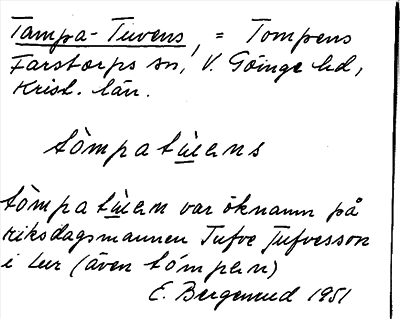 Tampa-Tuvens, = Tompens
Farstorps sn, V. Göinge hd,
Krist. län.
tòmpatùens
tòmpatùen var öknamn på
riksdagsmannen Tufve Tufvesson
i Lur (även tómpen)
E. Bergemud 1951